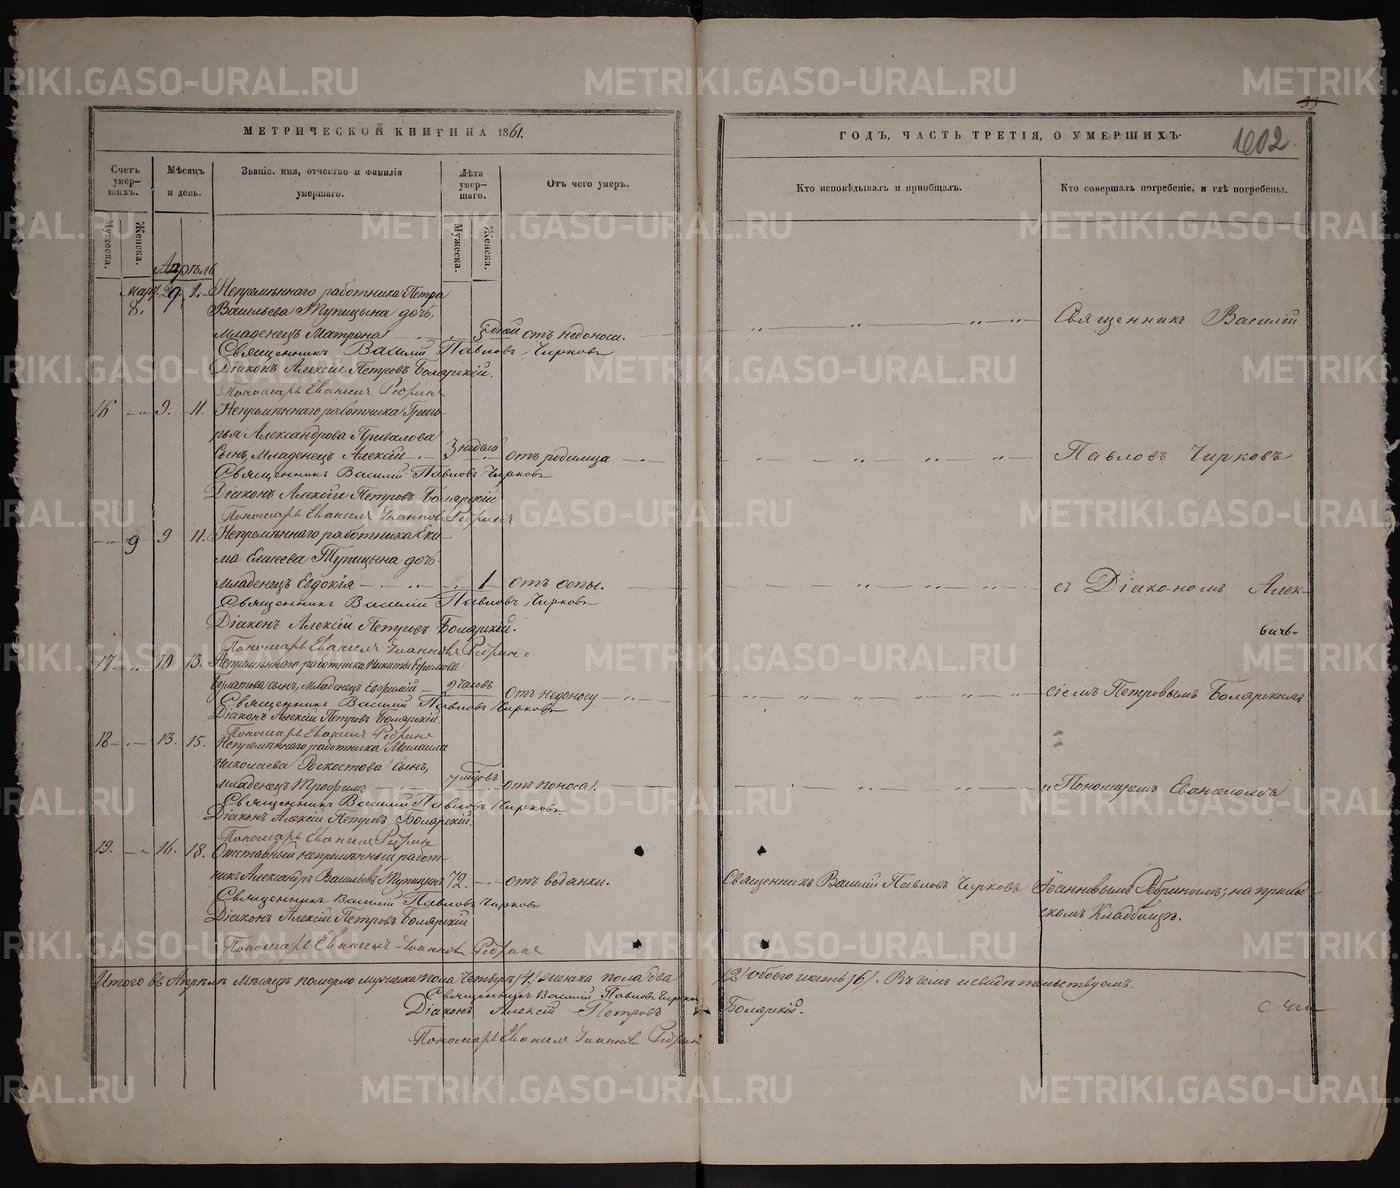 МЕТРИЧЕСКОЙ КНИГИ НА 1861.
ГОДЪ, ЧАСТЬ ТРЕТІЯ, О УМЕРШИХЪ.
33
1002.
Счетъ умер-шихъ.
Мужеска.
Женска.
Мѣсяцъ и день.
Званіе, имя, отчество и фамилія умершаго.
Лѣта умер-шаго.
Мужеска.
Женска.
Отъ чего умеръ.
Кто исповѣдывалъ и пріобщалъ.
Кто совершалъ погребеніе, и гдѣ погребены.
Апрѣль
Март. 29. 1. Непремѣннаго работника Петра
8. Васильева Тупицына дочь,
младенецъ Матрона 5 дней отъ недоноса.
Священникъ Василій Павловъ Чирковъ
Діаконъ Алексій Петровъ Боляр­скій.
Пономарь Евангелъ Ребринъ
16 9. 11. Непремѣннаго работника Григо-
рья Александрова Привалова
сынъ, младенецъ Алексій 3 недѣль отъ родимца
Священникъ Василій Павловъ Чирковъ
Діаконъ Алексій Петровъ Болярскій
Пономарь Евангелъ Іоанновъ Ребринъ
9 9 11. Непремѣннаго работника Еки-
ма Елисеева Тупицына дочь
младенецъ Евдокія 1 отъ оспы.
Священникъ Василій Павловъ Чирковъ
Діаконъ Алексій Петровъ Болярскій.
Пономарь Евангелъ Іоанновъ Ребринъ
17. 10 13. Непремѣннаго работника Никиты
сынъ, младенецъ 9 часовъ отъ недоносу
Священникъ Василій Павловъ Чирковъ
Діаконъ Алексій Петровъ Болярскій
Пономарь Евангелъ Ребринъ
18 13. 15. Непремѣннаго работника Михаила
Николаева сынъ,
младенецъ Трофимъ отъ поноса.
Священникъ Василій Павловъ Чирковъ
Діаконъ Алексій Петровъ Болярскій.
Пономарь Евангелъ Ребринъ
19. 16. 18. Отставный непремѣнный работ-
никъ Александръ Васильевъ Тупицынъ 72. отъ водянки.
Священникъ Василій Павловъ Чирковъ
Діаконъ Алексій Петровъ Болярскій
Пономарь Евангелъ Іоанновъ Ребринъ
Священникъ Василій Павловъ Чирковъ
Священникъ Василій
Павловъ Чирковъ
съ Діакономъ Алек-
сіемъ Петровымъ Болярскимъ
и Пономаремъ Евангеломъ
Іоанновымъ Ребринымъ, на приход-
скомъ кладбищѣ.
Итого въ Апрѣлѣ мѣсяцѣ померло мужеска пола четыре /4/ женска пола два /2/ обоего шесть /6/. Въ чемъ и свидѣтельствуемъ.
Священникъ Василій Павловъ Чирковъ
Діаконъ Алексій Петровъ Болярскій.
Пономарь Евангелъ Іоанновъ Ребринъ
METRIKI.GASO-URAL.RU